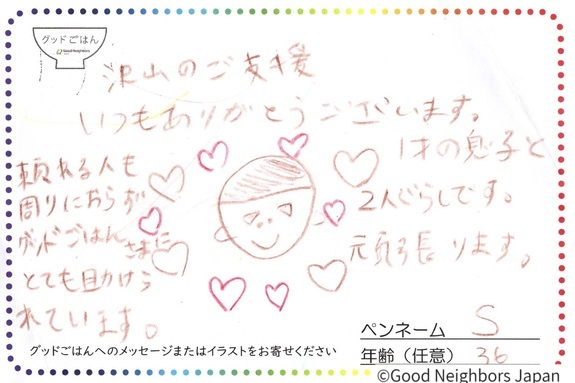 グッドごはん
Good Neighbors
沢山のご支援
いつもありがとうございます。
1才の息子と
2人ぐらしです。
頑張ります。
頼れる人も
周りにおらず
グッドごはんさまに
とても助けら
れています。
グッドごはんへのメッセージまたはイラストをお寄せください
ペンネーム S
年齢（任意） 36
©Good Neighbors Japan